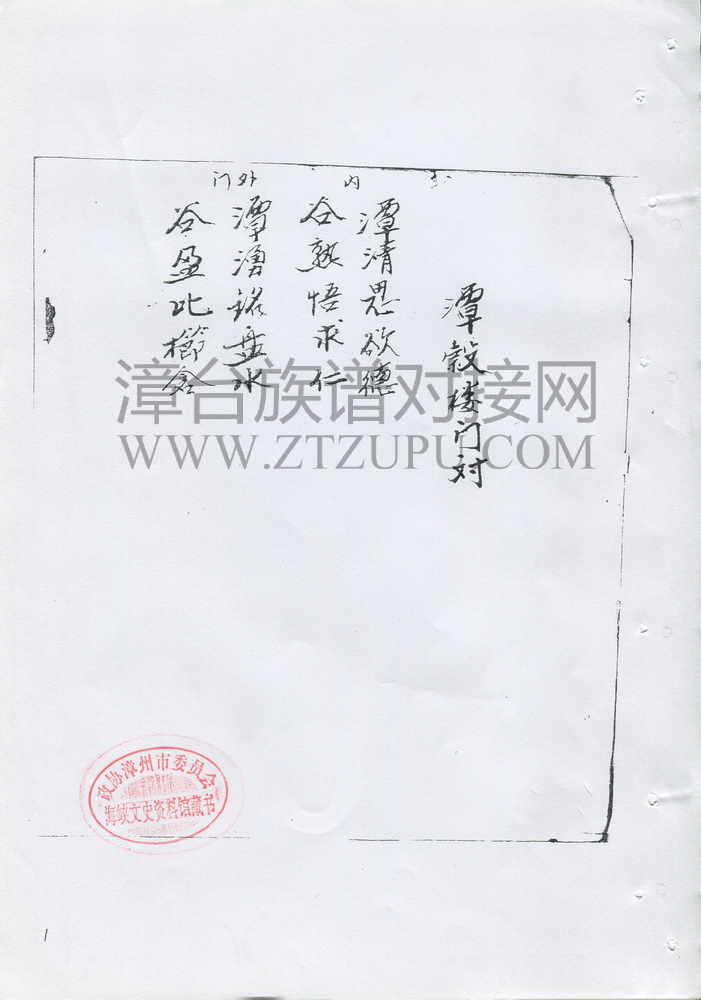 潭毅楼门对
内
潭清思欲德
谷熟悟求仁
门外
潭湧銘盘水
谷盈比櫛倉
漳台族谱对接网
WWW.ZTZUPU.COM
政协漳州市委员会
海峡文史资料馆藏书
1